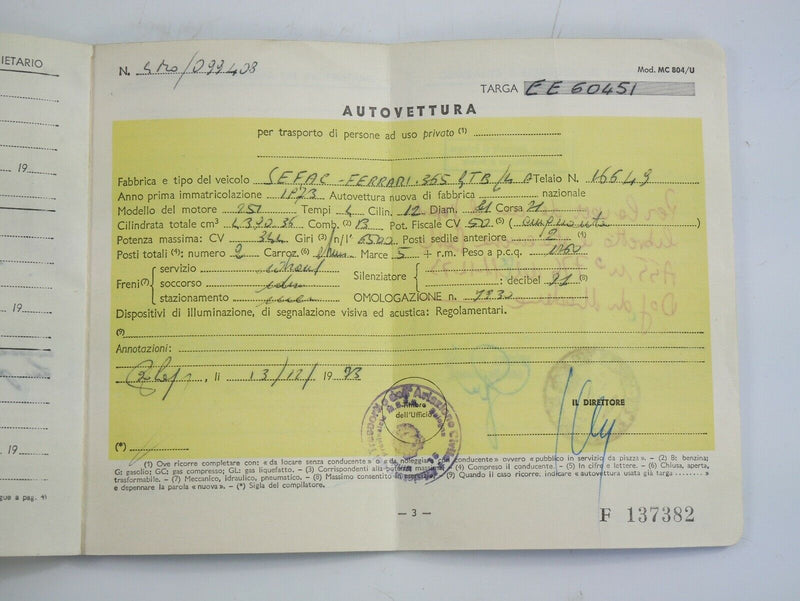 IETARIO
19
19
19
19
gue a pag. 4)
N. 099408
Mod. MC 804/U
TARGA EE 60451
AUTOVETTURA
per trasporto di persone ad uso privato (1)
Fabbrica e tipo del veicolo SEFAC-FERRARI.365 GTB/4 A Telaio N. 16649
Anno prima immatricolazione 1973 Autovettura nuova di fabbrica nazionale
Modello del motore 251 Tempi 4 Cilin. 12 Diam. 81 Corsa 71
Cilindrata totale cm³ 4390.35 Comb. (2) B Pot. Fiscale CV 50 (5) (cinquanta
Potenza massima: CV 344 Giri (3) n/1' 6500 Posti sedile anteriore 2 (4)
Posti totali (4): numero 2 Carroz. (6) Marce 5 + r.m. Peso a p.c.q. 1760
Freni (7) servizio
soccorso
stazionamento
Silenziatore : decibel 91 (8)
OMOLOGAZIONE n. 7930
Dispositivi di illuminazione, di segnalazione visiva ed acustica: Regolamentari.
(9)
Annotazioni:
, li 13/12/ 19 73
Il Timbro dell'Ufficio
IL DIRETTORE
(*)
(1) Ove ricorre completare con: «da locare senza conducente» o «da noleggiare con conducente» ovvero «pubblico in servizio da piazza». - (2) B: benzina;
G: gasolio; GC: gas compresso; GL: gas liquefatto. - (3) Corrispondenti alla potenza massima. - (4) Compreso il conducente. - (5) In cifre e lettere. - (6) Chiusa, aperta,
trasformabile. - (7) Meccanico, idraulico, pneumatico. - (8) Massimo consentito in - (9) Quando il caso ricorre, indicare «autovettura usata già targa ........»
e depennare la parola «nuova». - (*) Sigla del compilatore.
— 3 —
F 137382